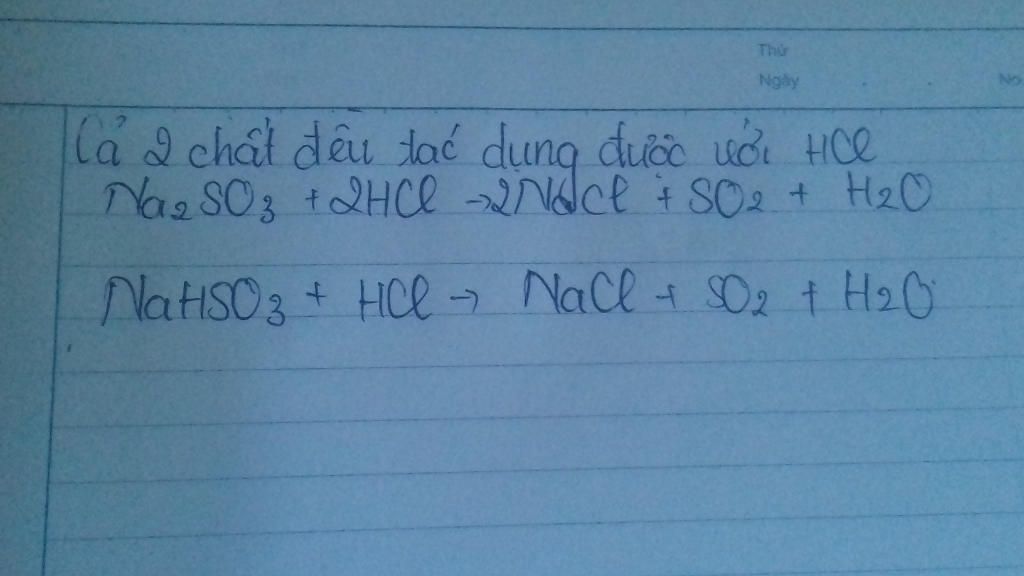 Thứ
Ngày
No
Cả 2 chất đều tác dụng được với HCl
Na2SO3 + 2HCl → 2NaCl + SO2 + H2O
NaHSO3 + HCl → NaCl + SO2 + H2O